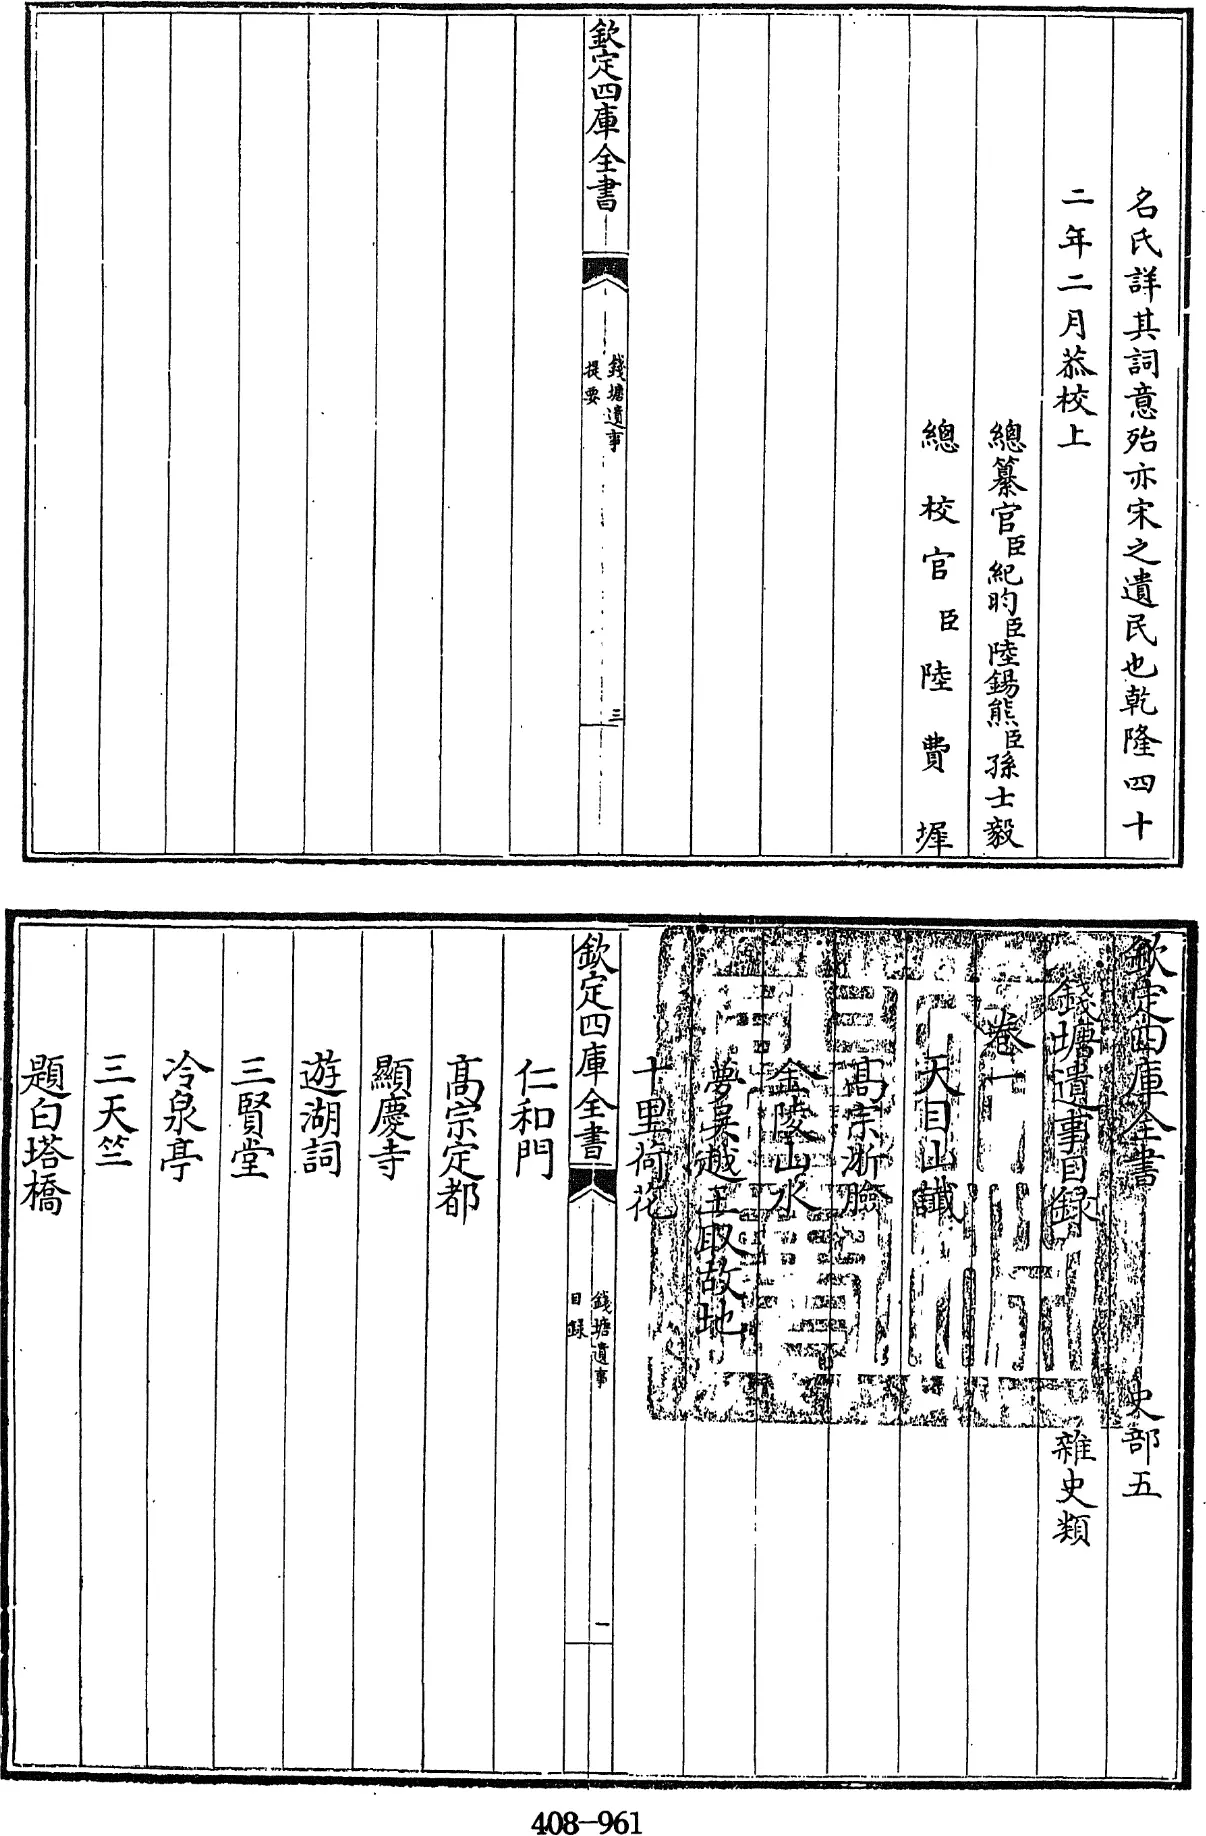 名氏詳其詞意殆亦宋之遺民也乾隆四十
二年二月恭校上
總纂官臣紀昀臣陸錫熊臣孫士毅
總校官臣陸費墀
欽定四庫全書
錢塘遺事
提要
三
欽定四庫全書
史部五
錢塘遺事目録
雜史類
卷一
天目山讖
高宗淛臉
金陵山水
夢吳越王取故地
十里荷花
欽定四庫全書
錢塘遺事
目録
一
仁和門
高宗定都
顯慶寺
遊湖詞
三賢堂
冷泉亭
三天竺
題白塔橋
408-961